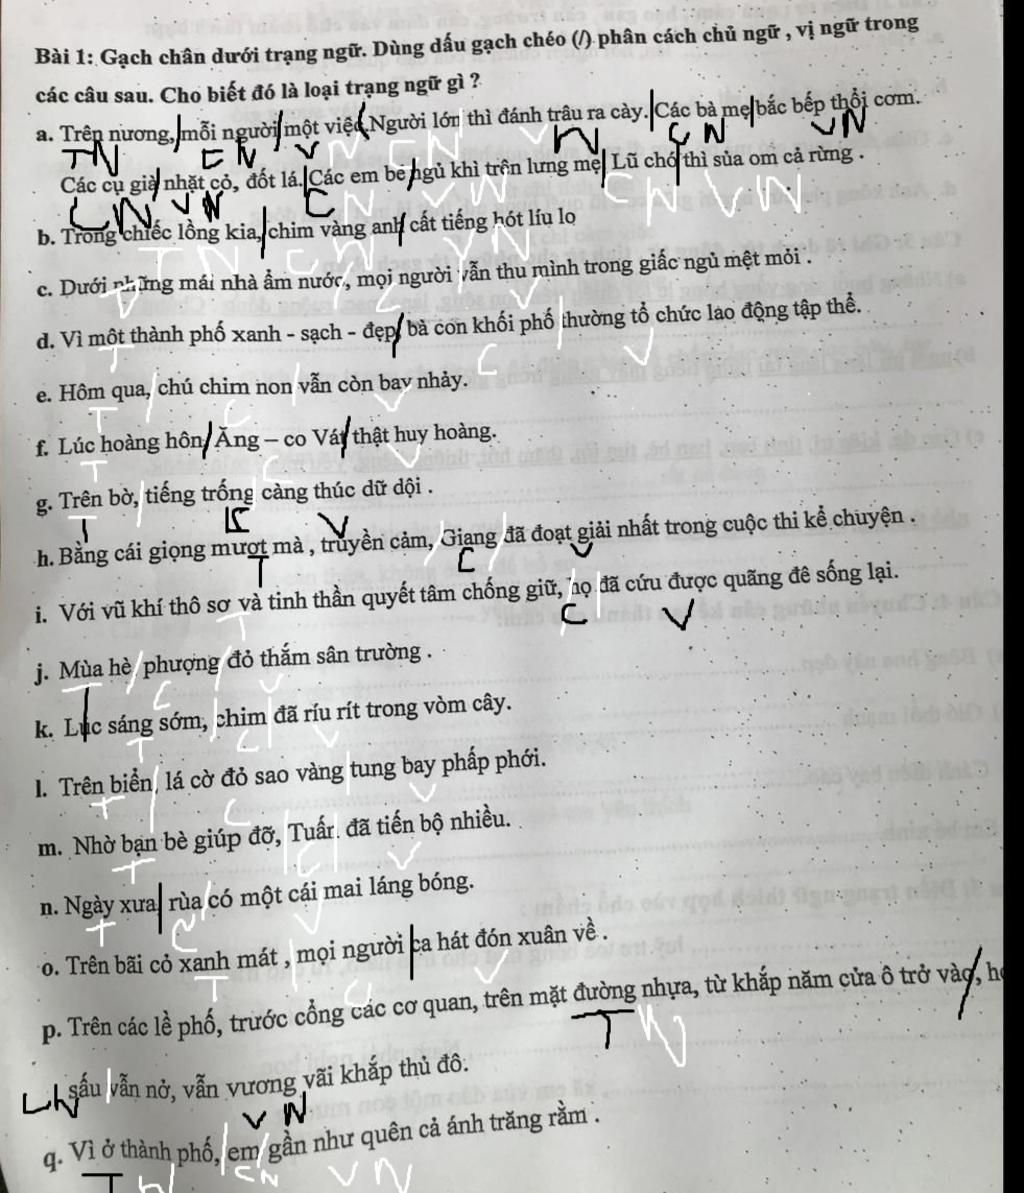 Bài 1: Gạch chân dưới trạng ngữ. Dùng dấu gạch chéo (/) phân cách chủ ngữ , vị ngữ trong
các câu sau. Cho biết đó là loại trạng ngữ gì ?
a. Trên nương, mỗi người một việc Người lớn thì đánh trâu ra cày. Các bà mẹ bắc bếp thổi cơm.
TN CN V N CN V N CN VN
Các cụ già nhặt cỏ, đốt lá. Các em bé ngủ khì trên lưng mẹ Lũ chó thì sủa om cả rừng .
CN VN CN VN CN VN
b. Trong chiếc lồng kia, chim vàng anh cất tiếng hót líu lo
TN CN VN
c. Dưới những mái nhà ẩm nước, mọi người vẫn thu mình trong giấc ngủ mệt mỏi .
d. Vì một thành phố xanh - sạch - đẹp bà con khối phố thường tổ chức lao động tập thể.
T C V
e. Hôm qua, chú chim non vẫn còn bay nhảy.
T C V
f. Lúc hoàng hôn Ăng – co Vát thật huy hoàng.
T C V
g. Trên bờ, tiếng trống càng thúc dữ dội .
T C V
h. Bằng cái giọng mượt mà , truyền cảm, Giang đã đoạt giải nhất trong cuộc thi kể chuyện .
T C V
i. Với vũ khí thô sơ và tinh thần quyết tâm chống giữ, họ đã cứu được quãng đê sống lại.
T C V
j. Mùa hè phượng đỏ thắm sân trường .
T C V
k. Lúc sáng sớm, chim đã ríu rít trong vòm cây.
T C V
l. Trên biển, lá cờ đỏ sao vàng tung bay phấp phới.
T C V
m. Nhờ bạn bè giúp đỡ, Tuấn đã tiến bộ nhiều.
T C V
n. Ngày xưa rùa có một cái mai láng bóng.
T C V
o. Trên bãi cỏ xanh mát , mọi người ca hát đón xuân về .
T C V
p. Trên các lề phố, trước cổng các cơ quan, trên mặt đường nhựa, từ khắp năm cửa ô trở vào,
TN
sấu vẫn nở, vẫn vương vãi khắp thủ đô.
CN VN
q. Vì ở thành phố, em gần như quên cả ánh trăng rằm .
TN CN VN